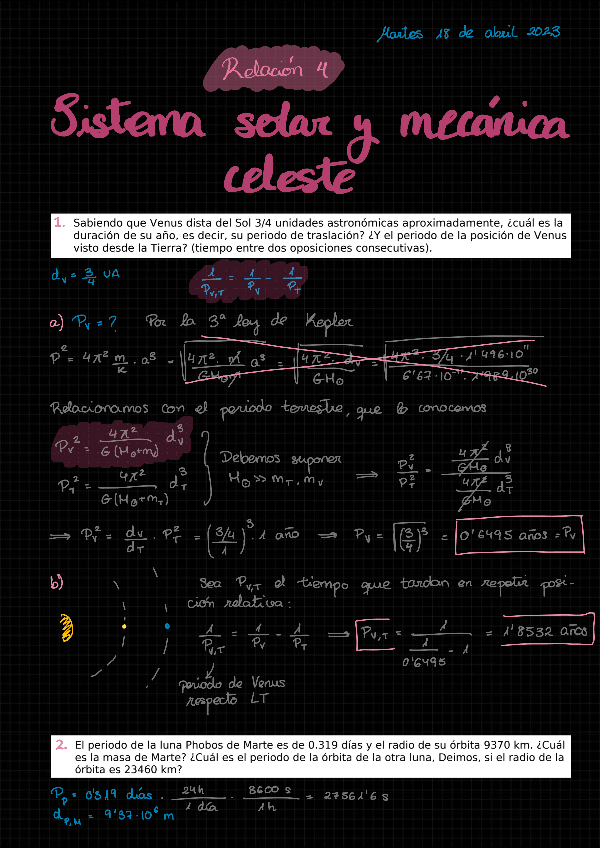 Martes 18 de abril 2023
Relación 4
Sistema solar y mecánica
celeste
1. Sabiendo que Venus dista del Sol 3/4 unidades astronómicas aproximadamente, ¿cuál es la
duración de su año, es decir, su periodo de traslación? ¿Y el periodo de la posición de Venus
visto desde la Tierra? (tiempo entre dos oposiciones consecutivas).
d_V = 3/4 UA    1/P_V,T = 1/P_V - 1/P_T
a) P_V = ? Por la 3ª ley de Kepler
P² = 4π² m/k · a³ = √(4π² · m/(GM⊙m) a³) = √(4π² · d_V/(GM⊙)) = √(4π² · 3/4 · 1'496·10¹¹/(6'67·10⁻¹¹ · 1'989·10³⁰))
Relacionamos con el periodo terrestre, que lo conocemos
P_V² = 4π²/(G(M⊙+m_V)) d_V³
P_T² = 4π²/(G(M⊙+m_T)) d_T³
Debemos suponer
M⊙ >> m_T, m_V ⟹ P_V²/P_T² = (4π²/(GM⊙) d_V³)/(4π²/(GM⊙) d_T³)
⟹ P_V² = d_V/d_T · P_T² = (3/4/1)³ · 1 año ⟹ P_V = √((3/4)³) = 0'6495 años = P_V
b) Sea P_V,T el tiempo que tardan en repetir posi-
ción relativa:
1/P_V,T = 1/P_V - 1/P_T ⟹ P_V,T = 1/(1/0'6495 - 1) = 1'8532 años
periodo de Venus
respecto LT
2. El periodo de la luna Phobos de Marte es de 0.319 días y el radio de su órbita 9370 km. ¿Cuál
es la masa de Marte? ¿Cuál es el periodo de la órbita de la otra luna, Deimos, si el radio de la
órbita es 23460 km?
P_P = 0'319 días · 24h/1 día · 3600 s/1h = 27561'6 s
d_P,M = 9'37·10⁶ m